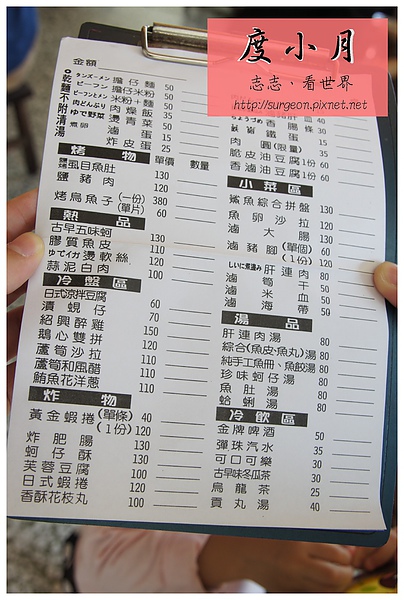 度小月
志志、看世界
http://surgeon.pixnet.net
金額
◎乾麵不附清湯
タンズーメン 擔仔麵 50
ビーフン 擔仔米粉 50
ビーフンとメン 米粉+麵 50
肉とんぶり 肉燥飯 35
ゆで野菜 燙青菜 50
煮卵 滷蛋 15
炸皮蛋 25
烤物 單價 數量
鹽烤虱目魚肚 130
鹽烤豬肉 120
烤烏魚子(一份) 380
(單片) 60
熱品
古早五味蚵 130
膠質魚皮 110
ゆでイカ 燙軟絲 120
蒜泥白肉 100
冷盤區
日式涼拌豆腐 60
漬蜆仔 70
紹興醉雞 150
鵝心雙拼 120
蘆筍沙拉 110
蘆筍和風醋 110
鮪魚花洋蔥 110
炸物
黃金蝦捲(單條) 40
(1份) 120
炸肥腸 130
蚵仔酥 130
芙蓉豆腐 100
日式蝦捲 120
香酥花枝丸 100
香腸 30
鐵蛋
肉圓(限量) 35
脆皮油豆腐 1份 60
香滷油豆腐 1份 60
小菜區
鯊魚綜合拼盤 130
魚卵沙拉 120
滷大腸 130
滷豬腳(單個) 60
(1份) 120
しいに煮温み 肝連肉 80
滷筍干 50
滷米血 50
滷海帶 50
湯品
肝連肉湯 80
綜合(魚皮·魚丸)湯 80
純手工魚冊、魚餃湯 80
珍味蚵仔湯 80
魚肚湯 80
蛤蜊湯 80
冷飲區
金牌啤酒 50
彈珠汽水 35
可口可樂 30
古早味冬瓜茶 30
烏龍茶 25
貢丸湯 40